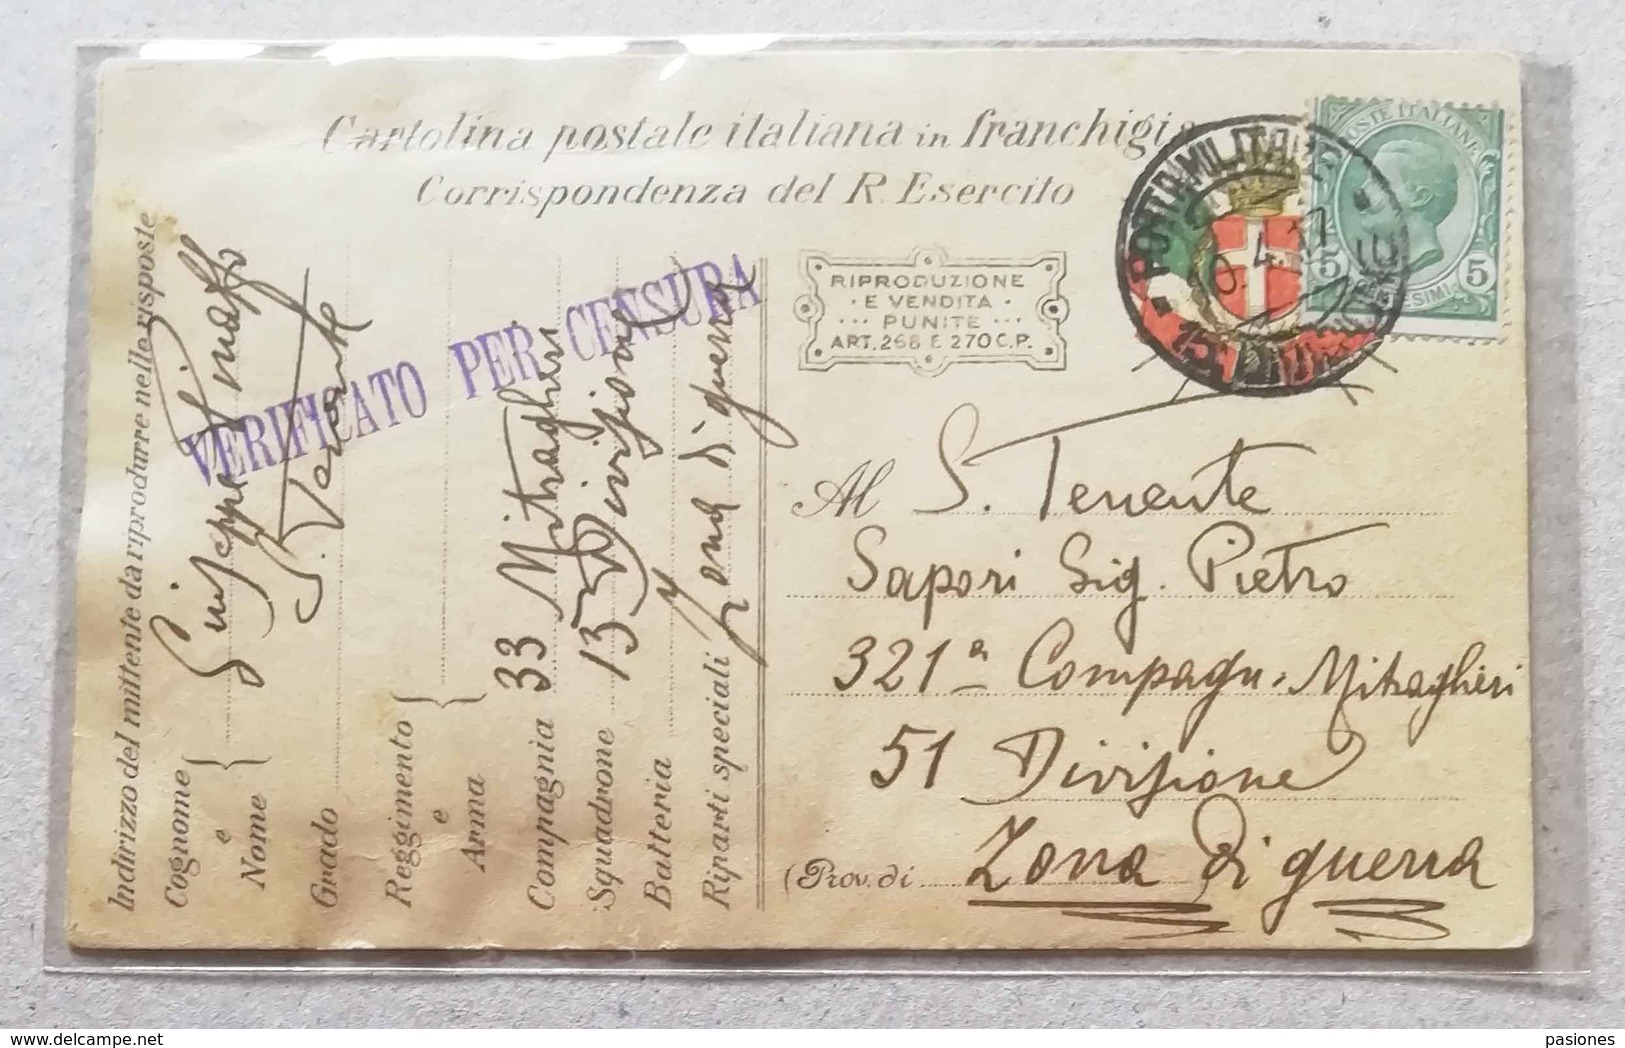 Cartolina postale italiana in franchigia
Corrispondenza del R. Esercito
RIPRODUZIONE
E VENDITA
PUNITE
ART. 268 E 270 C.P.
POSTA MILITARE
POSTE ITALIANE
5 5
VERIFICATO PER CENSURA
Al S. Tenente
Sapori Sig. Pietro
321ª Compagn. Mitraglieri
51 Divisione
(Prov. di Zona di guerra
Indirizzo del mittente da riprodurre nelle risposte
Cognome
e
Nome
Giuseppe
Grado
S. Tenente
Reggimento
e
Arma
Compagnia 33 Mitraglieri
Squadrone 13 Divisione
Batteria
Riparti speciali Zona di guerra
pasiones